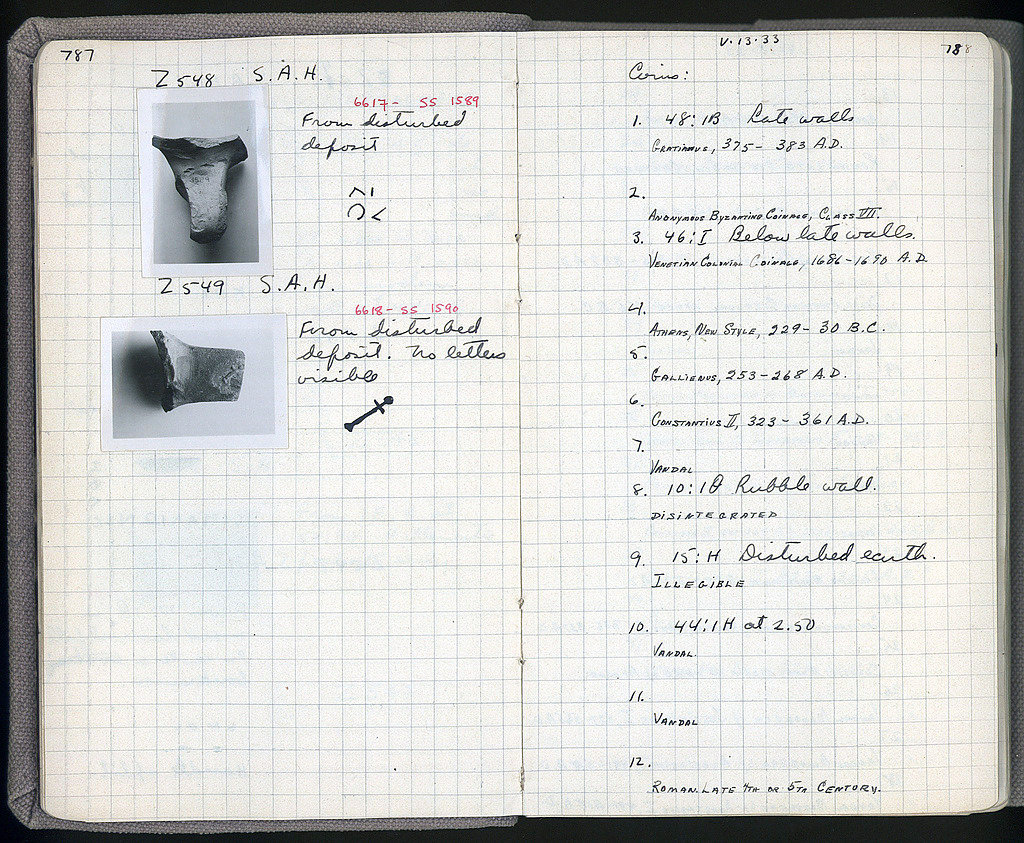 787
Z 548 S.A.H.
6617- SS 1589
From disturbed
deposit
Z 549 S.A.H.
6618- SS 1590
From disturbed
deposit. No letters
visible
V.13.33
788
Coins:
1. 48:1B Late walls
GRATIANUS, 375- 383 A.D.
2.
ANONYMOUS BYZANTINE COINAGE, CLASS VII.
3. 46:I Below late walls.
VENETIAN COLONIAL COINAGE, 1686-1690 A.D.
4.
ATHENS, NEW STYLE, 229- 30 B.C.
5.
GALLIENUS, 253-268 A.D.
6.
CONSTANTIUS II, 323- 361 A.D.
7.
VANDAL
8. 10:1Θ Rubble wall.
DISINTEGRATED
9. 15:H Disturbed earth.
ILLEGIBLE
10. 44:1H at 2.50
VANDAL.
11.
VANDAL
12.
ROMAN. LATE 4TH OR 5TH CENTORY.